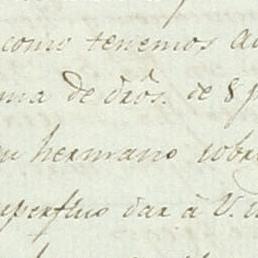 como tenemos
ma de dros. de 8
hermano sobre
superfluo dar à V.